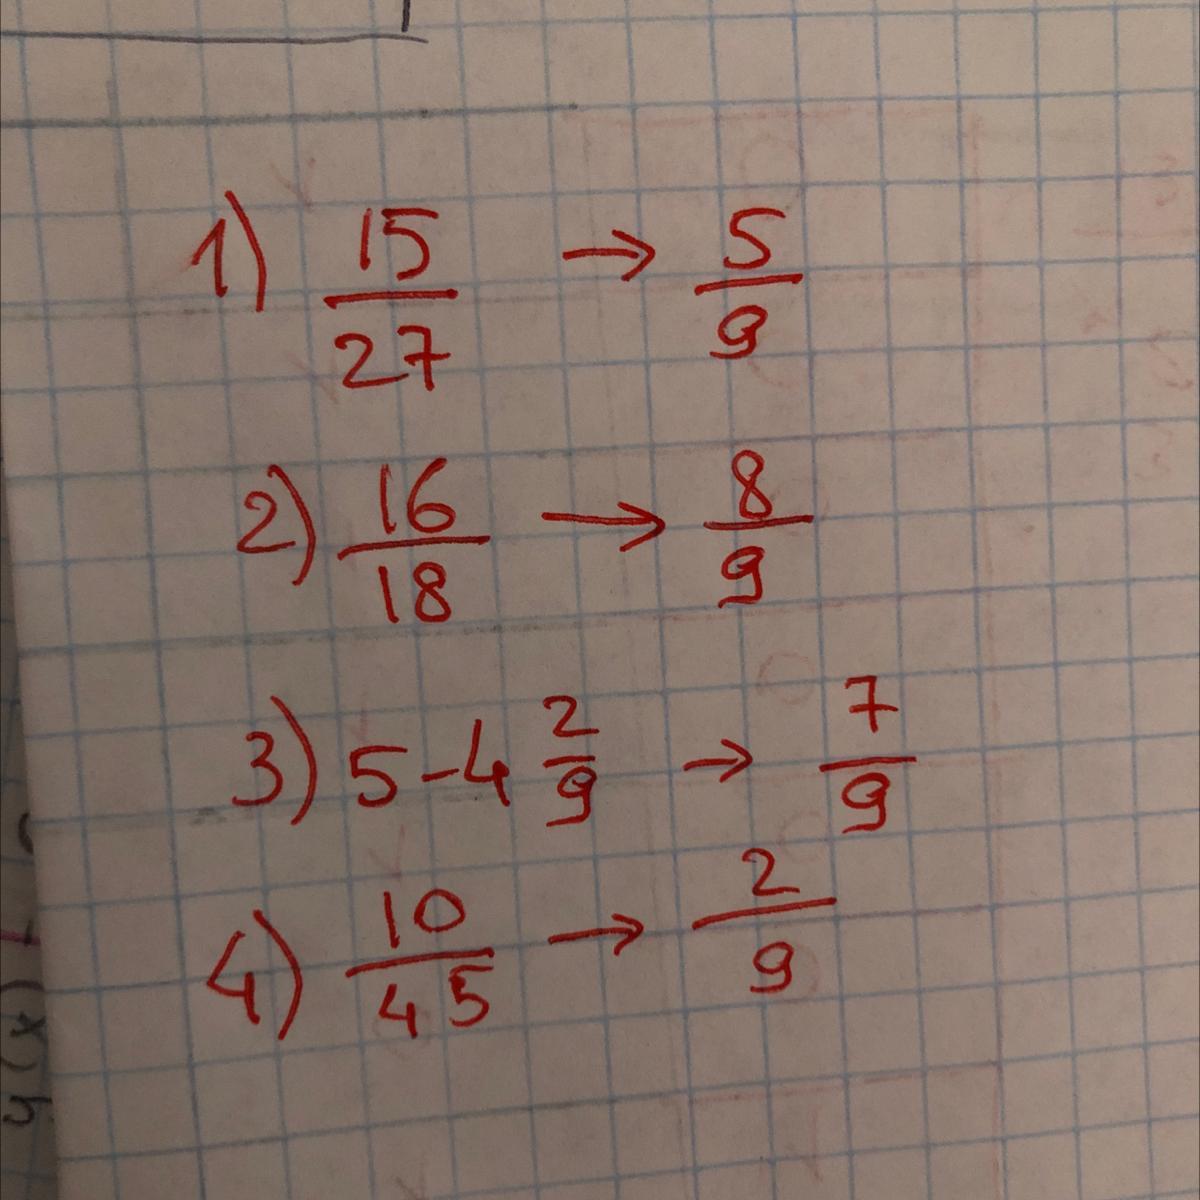 1) 15/27 → 5/9
2) 16/18 → 8/9
3) 5-4 2/9 → 7/9
4) 10/45 → 2/9
y(x)